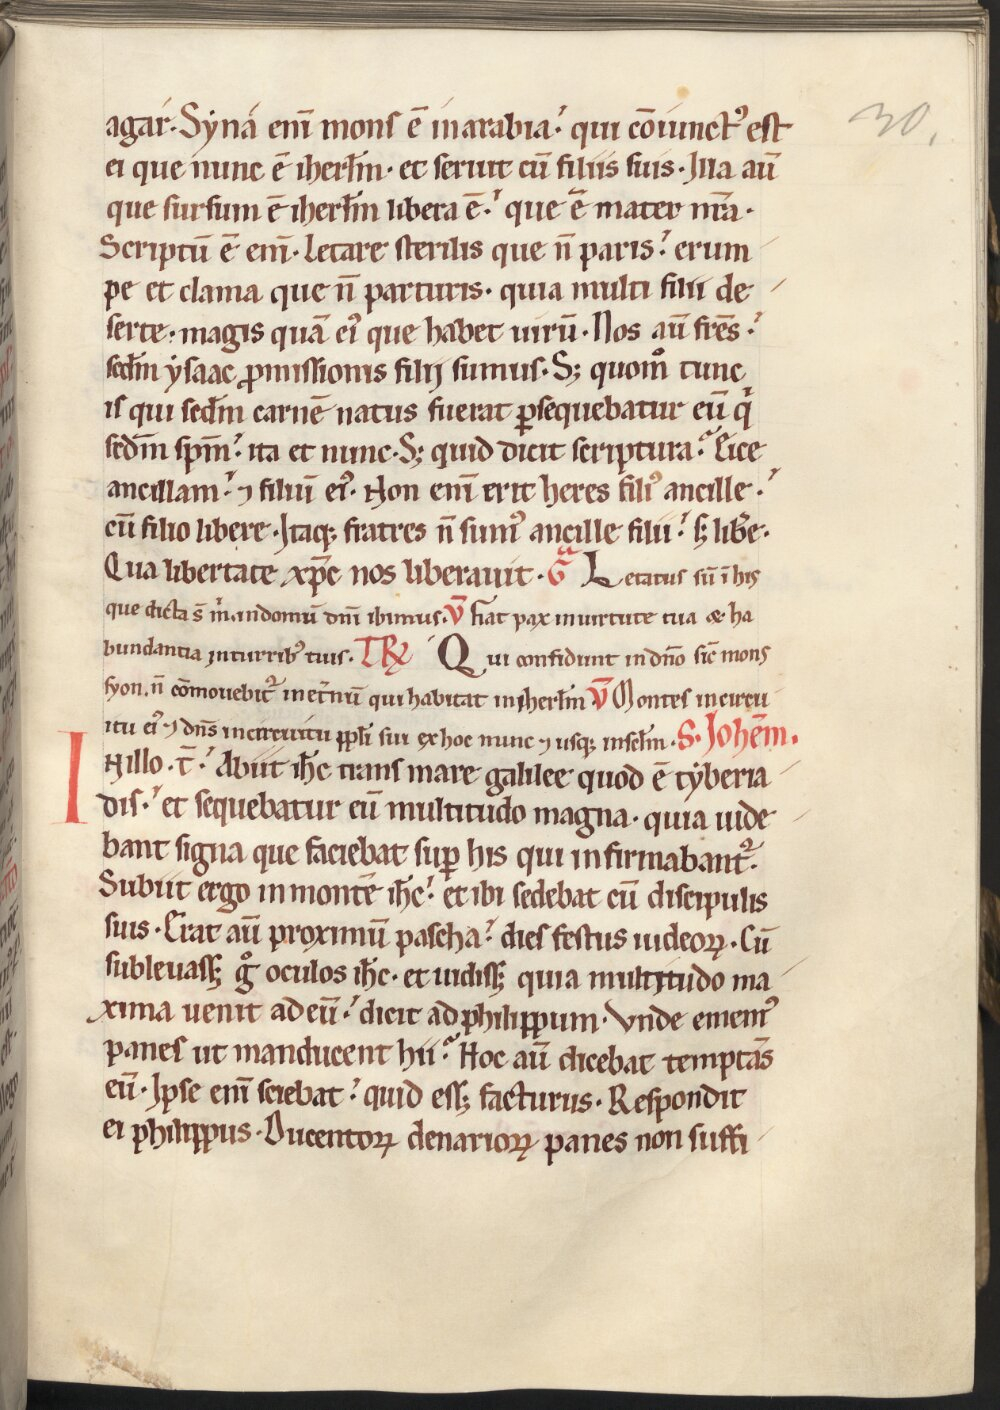 30.
agar. Syna eni̅ mons e̅ in arabia. qui co̅iunct᷒ est
ei que nunc e̅ iherl̅m. et seruit cu̅ filiis suis. Illa au̅
que sursum e̅ iherl̅m libera e̅. que e̅ mater nr̅a.
Scriptu̅ e̅ eni̅. Letare sterilis que n̅ paris. erum
pe et clama que n̅ parturis. quia multi filii de
serte. magis qua̅ ei᷒ que habet uiru̅. Nos au̅ fr̅es.
sed̅m ysaac ꝓmissionis filii sumus. Sꝫ quom̊ tunc
is qui sed̅m carne̅ natus fuerat ꝑsequebatur eu̅ qͥ
sed̅m sp̅m. ita et nunc. Sꝫ quid dicit scriptura. Eice
ancillam. ⁊ filiu̅ ei᷒. Non eni̅ erit heres fili᷒ ancille.
cu̅ filio libere. Itaqꝫ fratres n̅ sum᷒ ancille filii. sꝫ lib̅e.
Qua libertate xp̅c nos liberauit. Gͣ Letatus su̅ i̅ his
que dicta s̅ mͥ. in domu̅ dn̅i ibimus. V̅ Fiat pax in uirtute tua & ha
bundantia in turrib᷒ tuis. TR̅ Qui confidunt in dn̅o sic̅ mons
syon. n̅ co̅mouebit᷑ in et̅nu̅ qui habitat in iherl̅m V̅ Montes in circu
itu ei᷒ ⁊ dn̅s in circuitu ppl̅i sui ex hoc nunc ⁊ usqꝫ in sc̅lm. S. Johe̅m.
In illo. t̅. Abiit ih̅c trans mare galilee quod e̅ tyberia
dis. et sequebatur eu̅ multitudo magna. quia uide
bant signa que faciebat suꝑ his qui infirmabant᷑.
Subiit ergo in monte̅ ih̅c. et ibi sedebat cu̅ discipulis
suis. Erat au̅ proximu̅ pascha. dies festus iudeoꝝ. Cu̅
subleuassꝫ gͦ oculos ih̅c. et uidissꝫ quia multitudo ma
xima uenit ad eu̅. dicit ad philippum. Vnde emem᷒
panes ut manducent hii. Hoc au̅ dicebat tempta̅s
eu̅. Ipse eni̅ sciebat. quid essꝫ facturus. Respondit
ei philippus. Ducentoꝝ denarioꝝ panes non suffi